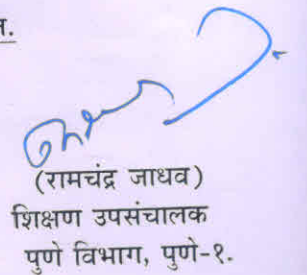 (रामचंद्र जाधव)
शिक्षण उपसंचालक
पुणे विभाग, पुणे-१.